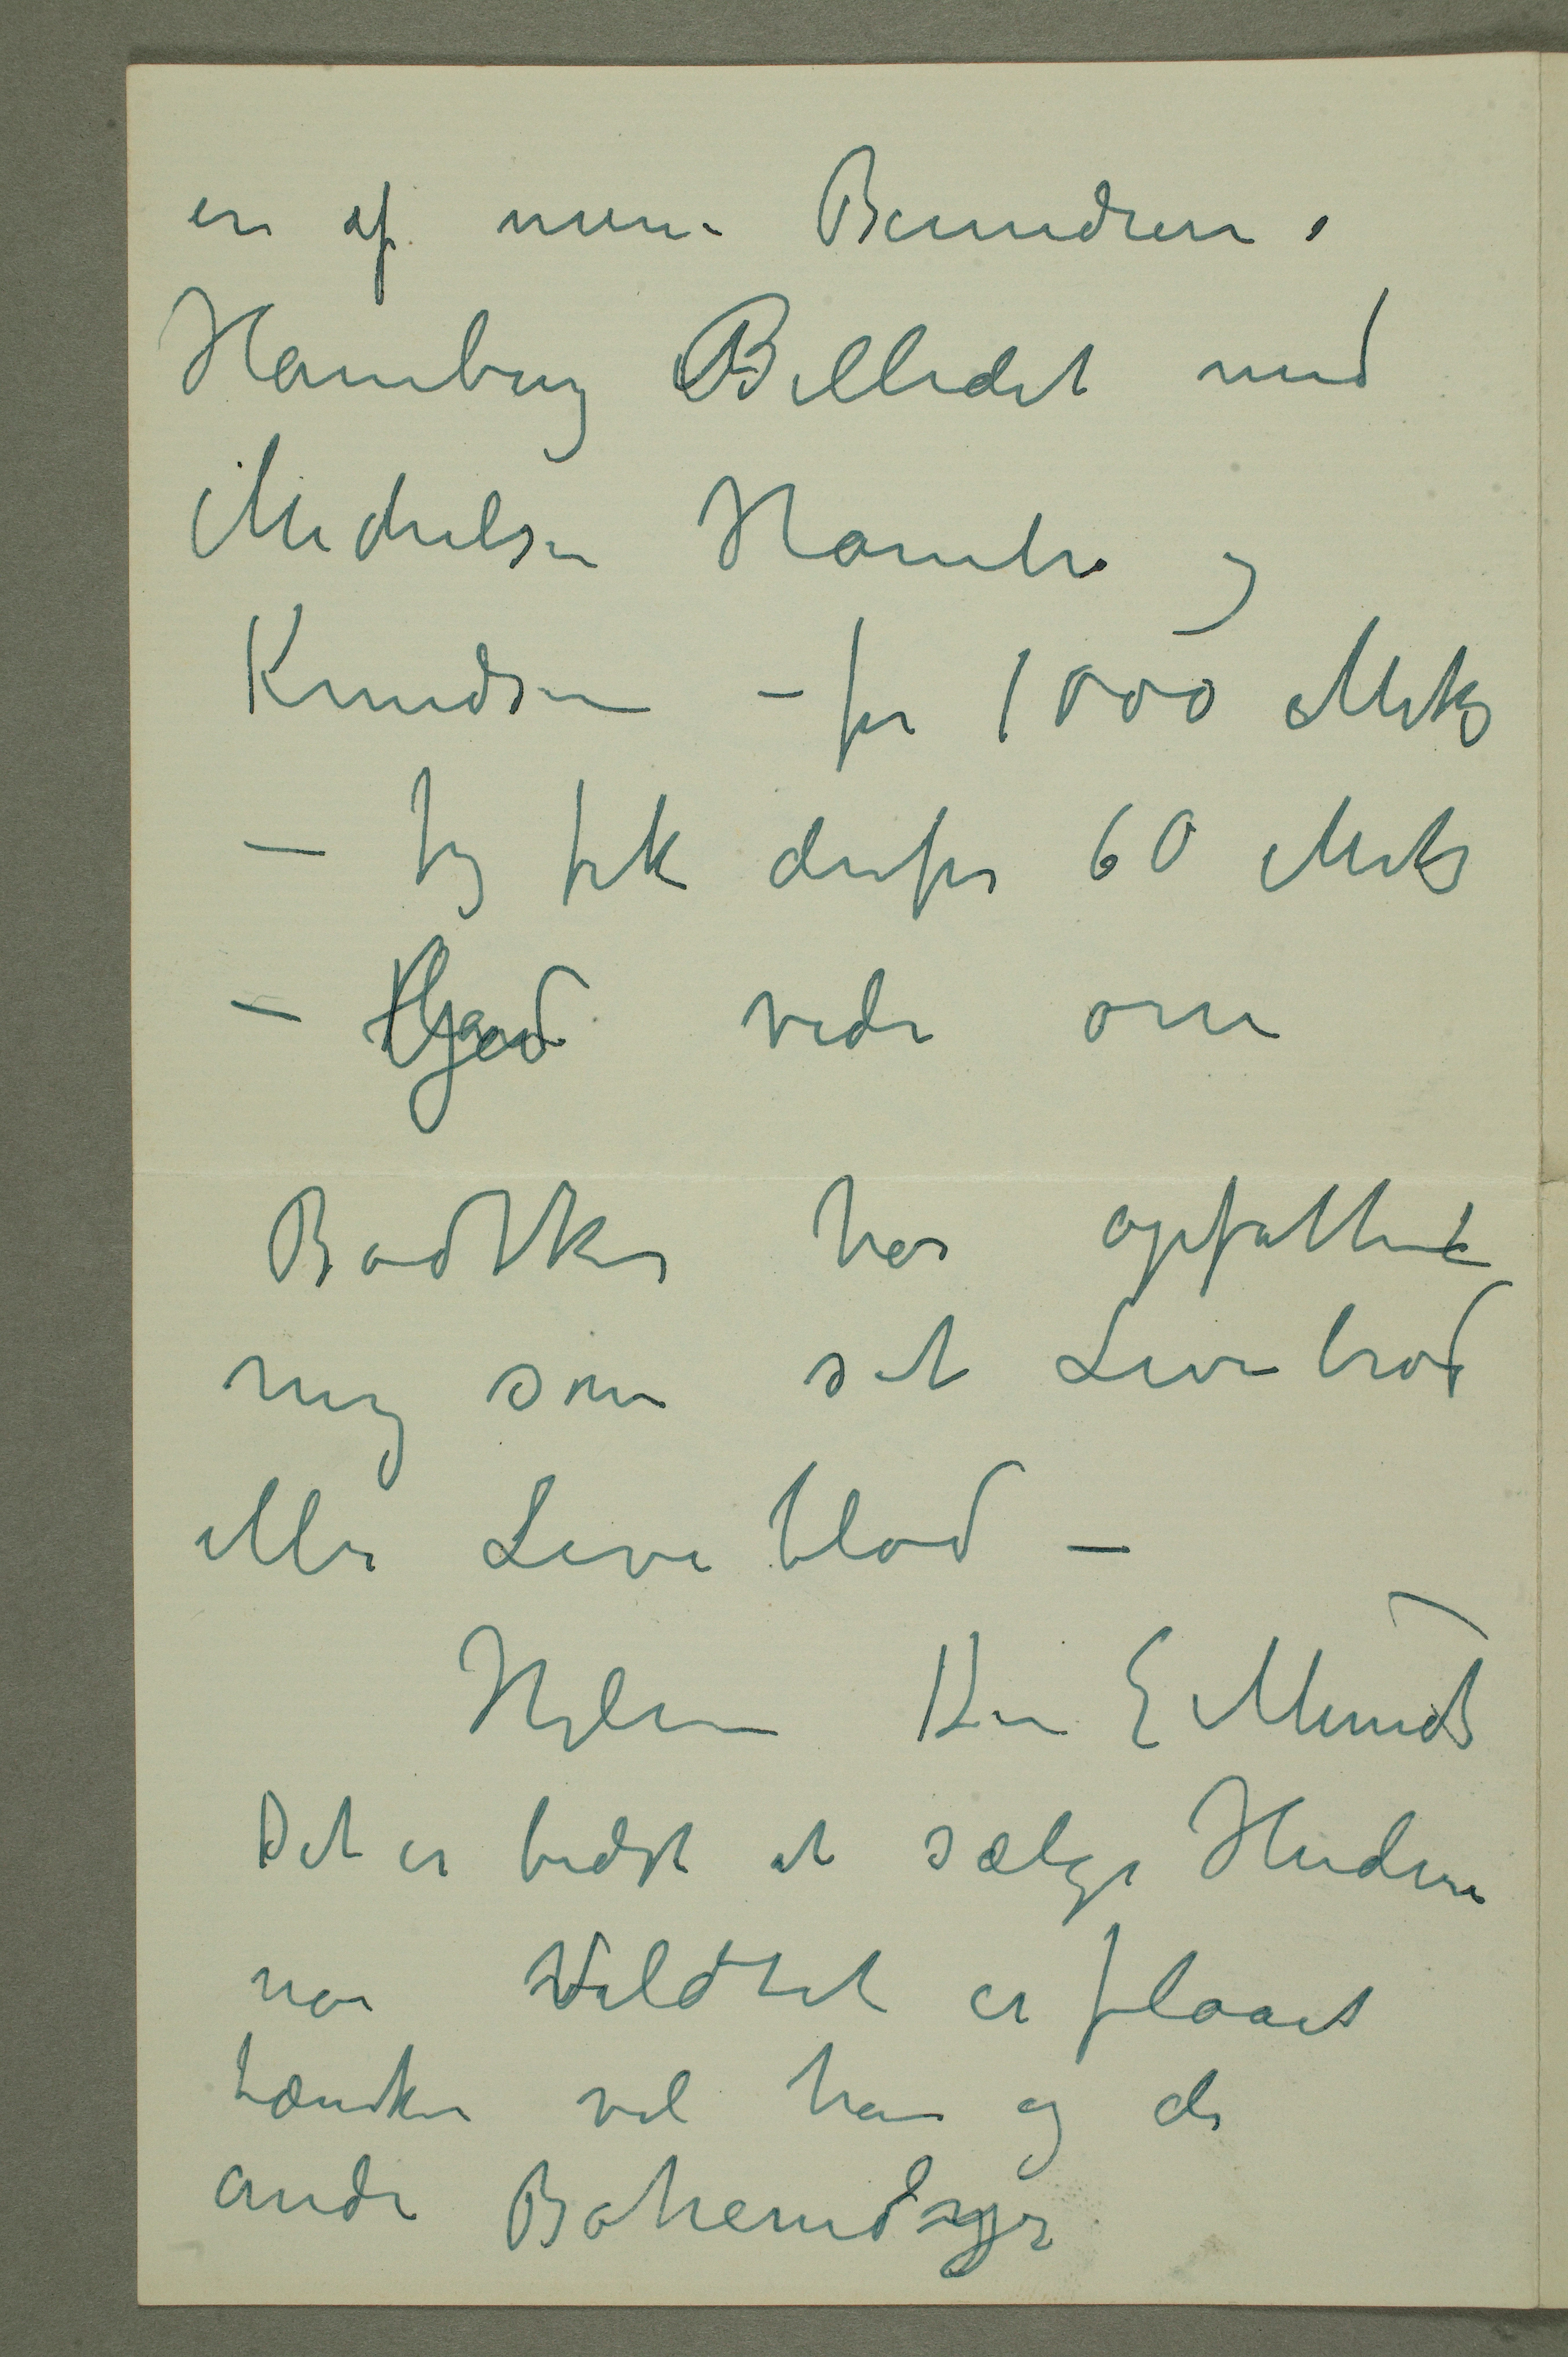 en af mine Beundrere i
Hamburg Billedet med
Michelsen Hambro og
Knudsen – for 1000 Mks
– Jeg fik derfor 60 Mks
– Gad vide om
Bødtker har opfattet
mig som sit Levebrød
eller Leveblod –
Hilsen Din E Munch
Det er bedst at sælge Huden
når Vildtet er flaaet
tænker vel han og de
andre Bohemdyr